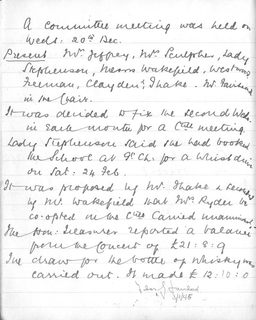 A committee meeting was held on
Weds: 20th Dec.
Present Mr. Jeffrey, Mrs Sculpher, Lady
Stephenson, Messrs Wakefield, Westway
Freeman, Clayden, Thake. Mr.
in the Chair.
It was decided to fix the second Weds
in each month for a Ctee meeting.
Lady Stephenson said she had booked
the School at Gt. Ch. for a whist drive
on Sat: 24 Feb.
It was proposed by Mr. Thake & seconded
by Mr. Wakefield that Mrs Ryder be
co-opted on the Ctee Carried unanimous.
The Hon: Treasurer reported a balance
from the Concert of £21:8:9
The draw for the bottle of whisky was
carried out. It made £12:10:0